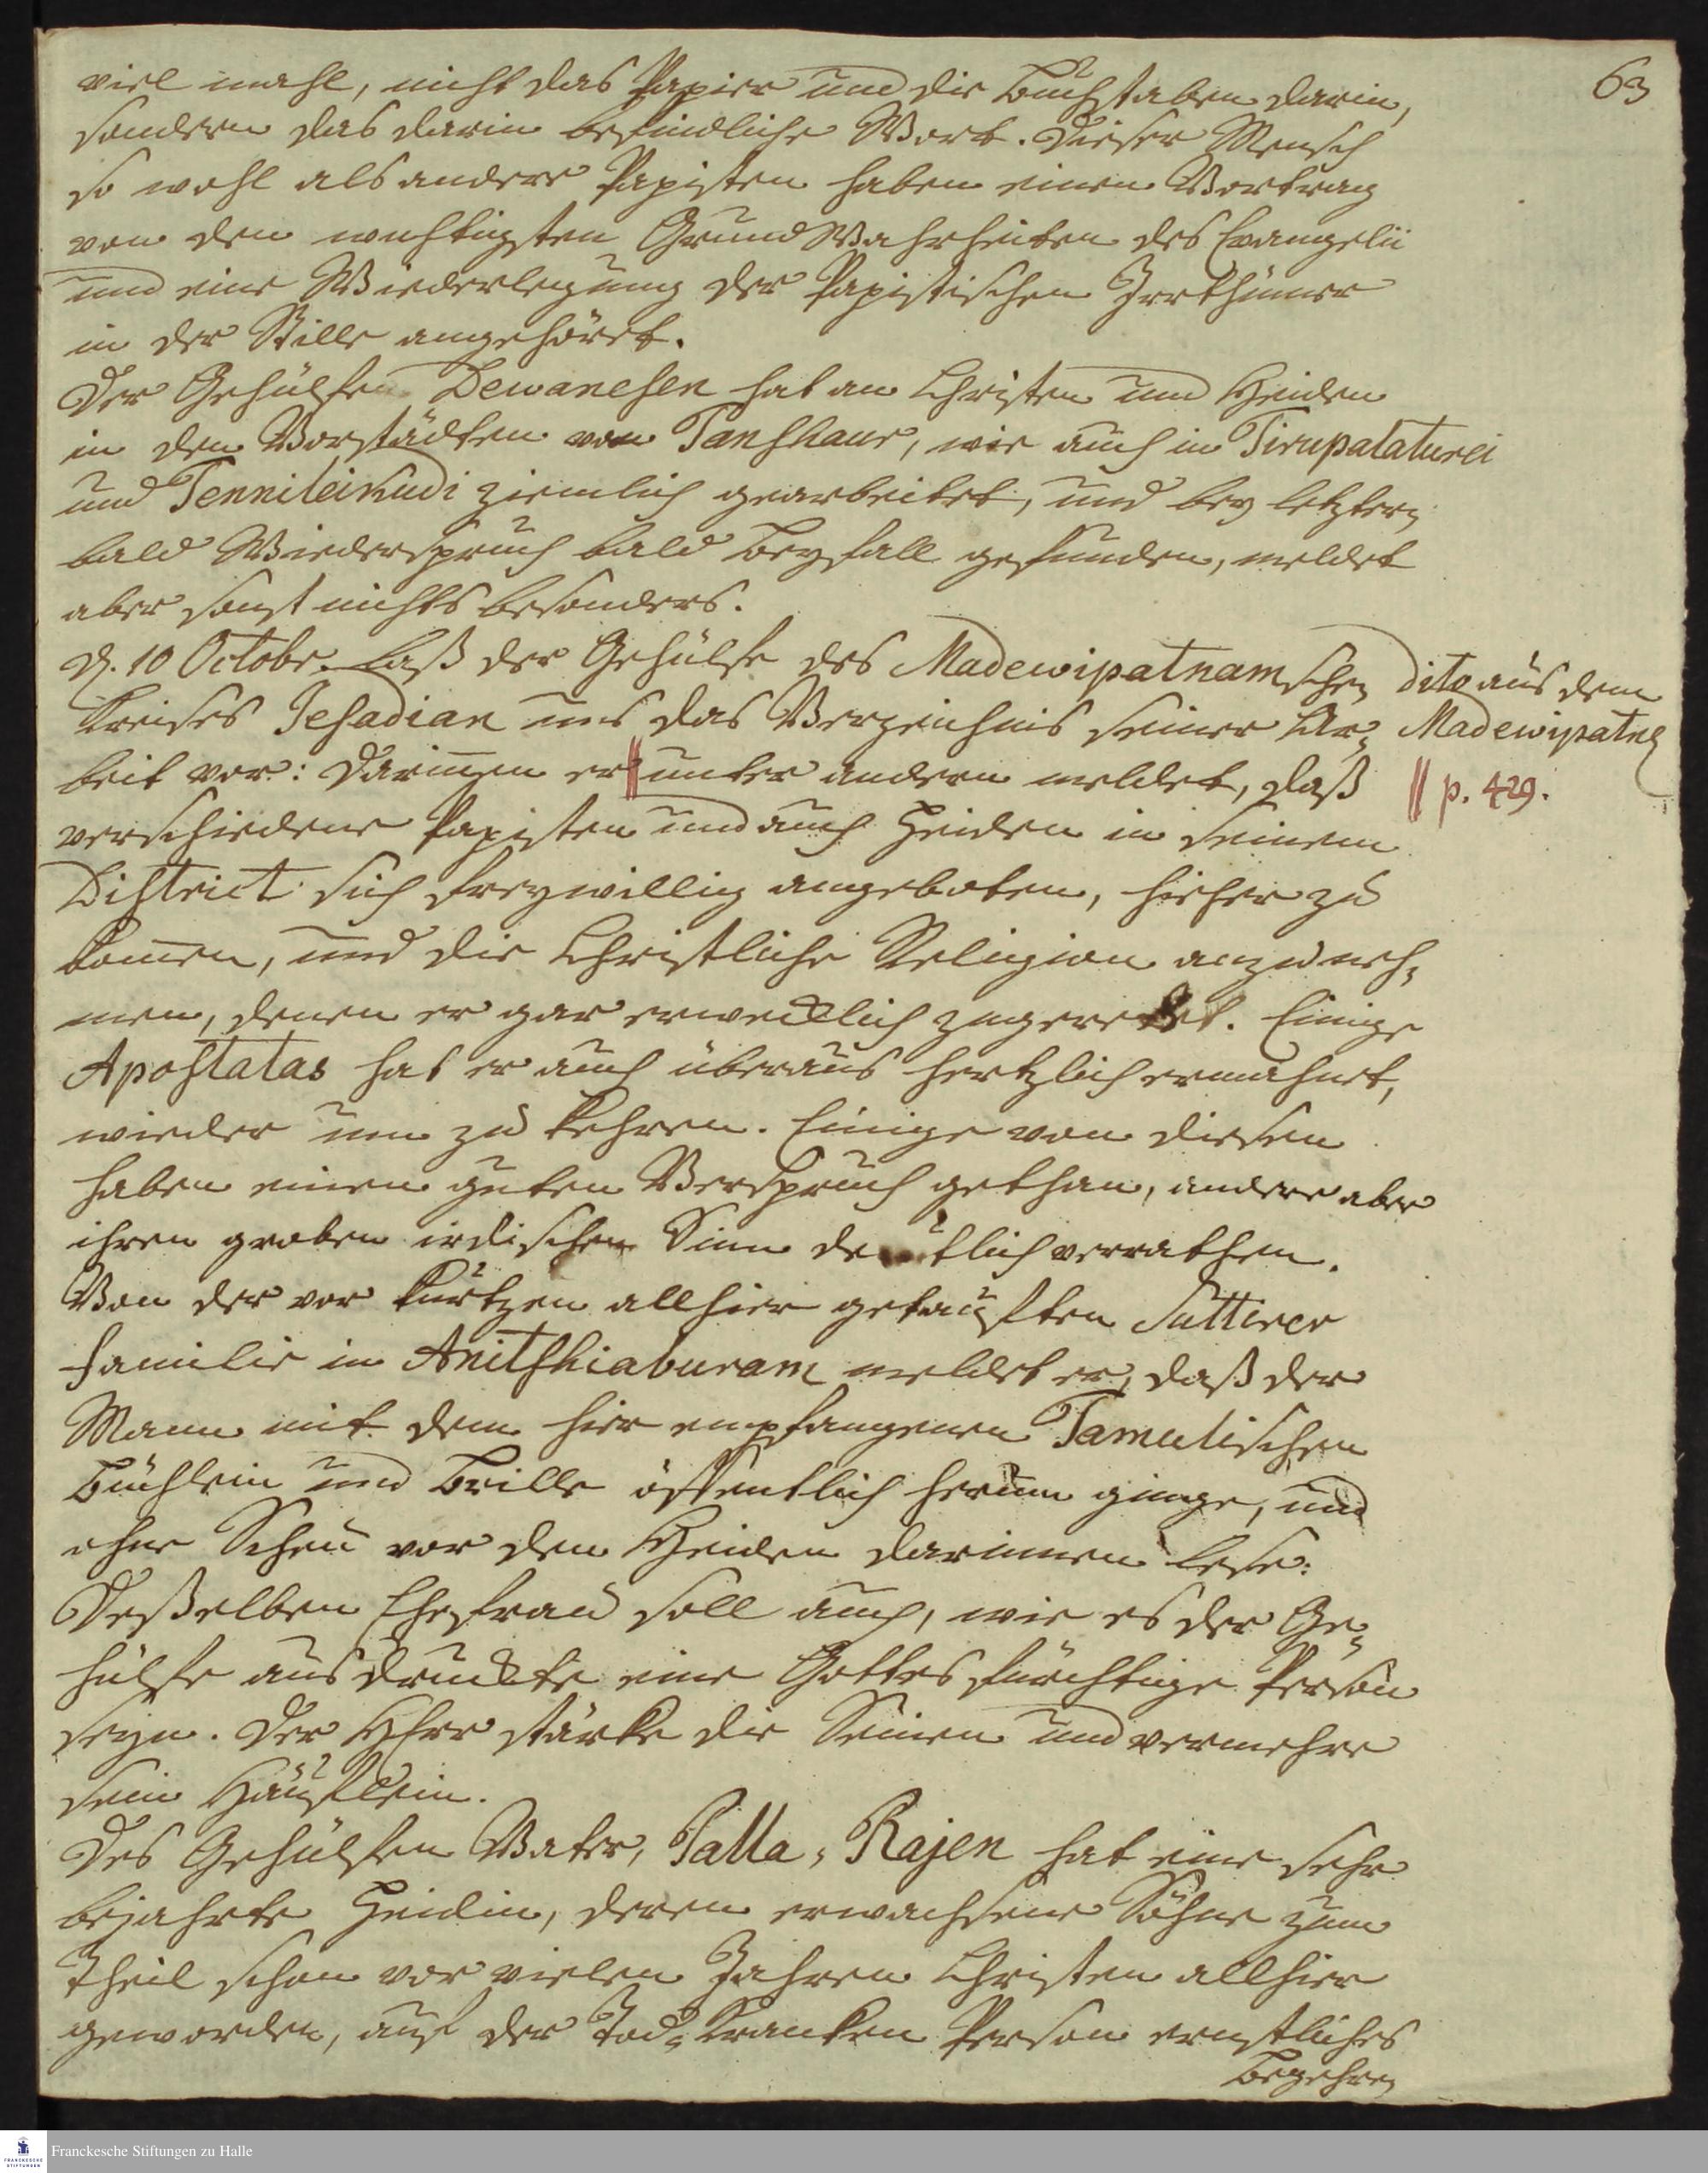 63
viel mahl, nicht das Papier und die Buchstaben darin,
sondern das darin befindliche Wort. Dieser Mensch
so wohl als andere Papisten haben einen Vortrag
von den wichtigsten GrundWahrheiten des Evangelii
und eine Wiederlegung der Papistischen Irrthümer
in der Stille angehöret.
Der Gehülfe Dewanesen hat an Christen und Heiden
in den Vorstädten von Tanshaur, wie auch in Tirupalaturei
und Tennileikudi ziemlich gearbeitet, und bey letztern
bald Wiederspruch bald Beyfall gefunden, meldet
aber sonst nichts besonders.
d. 10 Octobr. laß der Gehülfe des Madewipatnamschen
Kreises Jesadian uns das Verzeichnis seiner Ar-
beit vor: darinnen er || unter andern meldet, daß
verschiedene Papisten und auch Heiden in seinem
District sich freywillig angeboten, hieher zu
kommen, und die Christliche Religion anzuneh-
men, denen er gar erwecklich zugeredet. Einige
Apostatas hat er auch überaus hertzlich ermahnet,
wieder um zu kehren. Einige von diesen
haben einen guten Verspruch gethan, andere aber
ihren groben irdischen Sinn deutlich verrathen.
Von der vor kurtzen allhier getauften Suttirer
Familie in Anitshiaburam meldet er, daß der
Mann mit dem hier empfangenen Tamulischen
Büchlein und Brille öffentlich herum ginge, und
ohne Scheu vor den Heiden darinnen lese.
Deßelben Ehefrau soll auch, wie es der Ge-
hülfe ausdruckte eine Gottesfürchtige Person
seyn. Der HErr stärke die Seinen und vermehre
sein Häuflein.
Des Gehülfen Vater, Palla-Rajen hat eine sehr
bejahrte Heidin, deren erwachsene Söhne zum
Theil schon vor vielen Jahren Christen allhier
geworden, auf der Tod-Kranken Person ernstliches
Begehren
dito aus dem
Madewipatn
|| p. 429.
Franckesche Stiftungen zu Halle